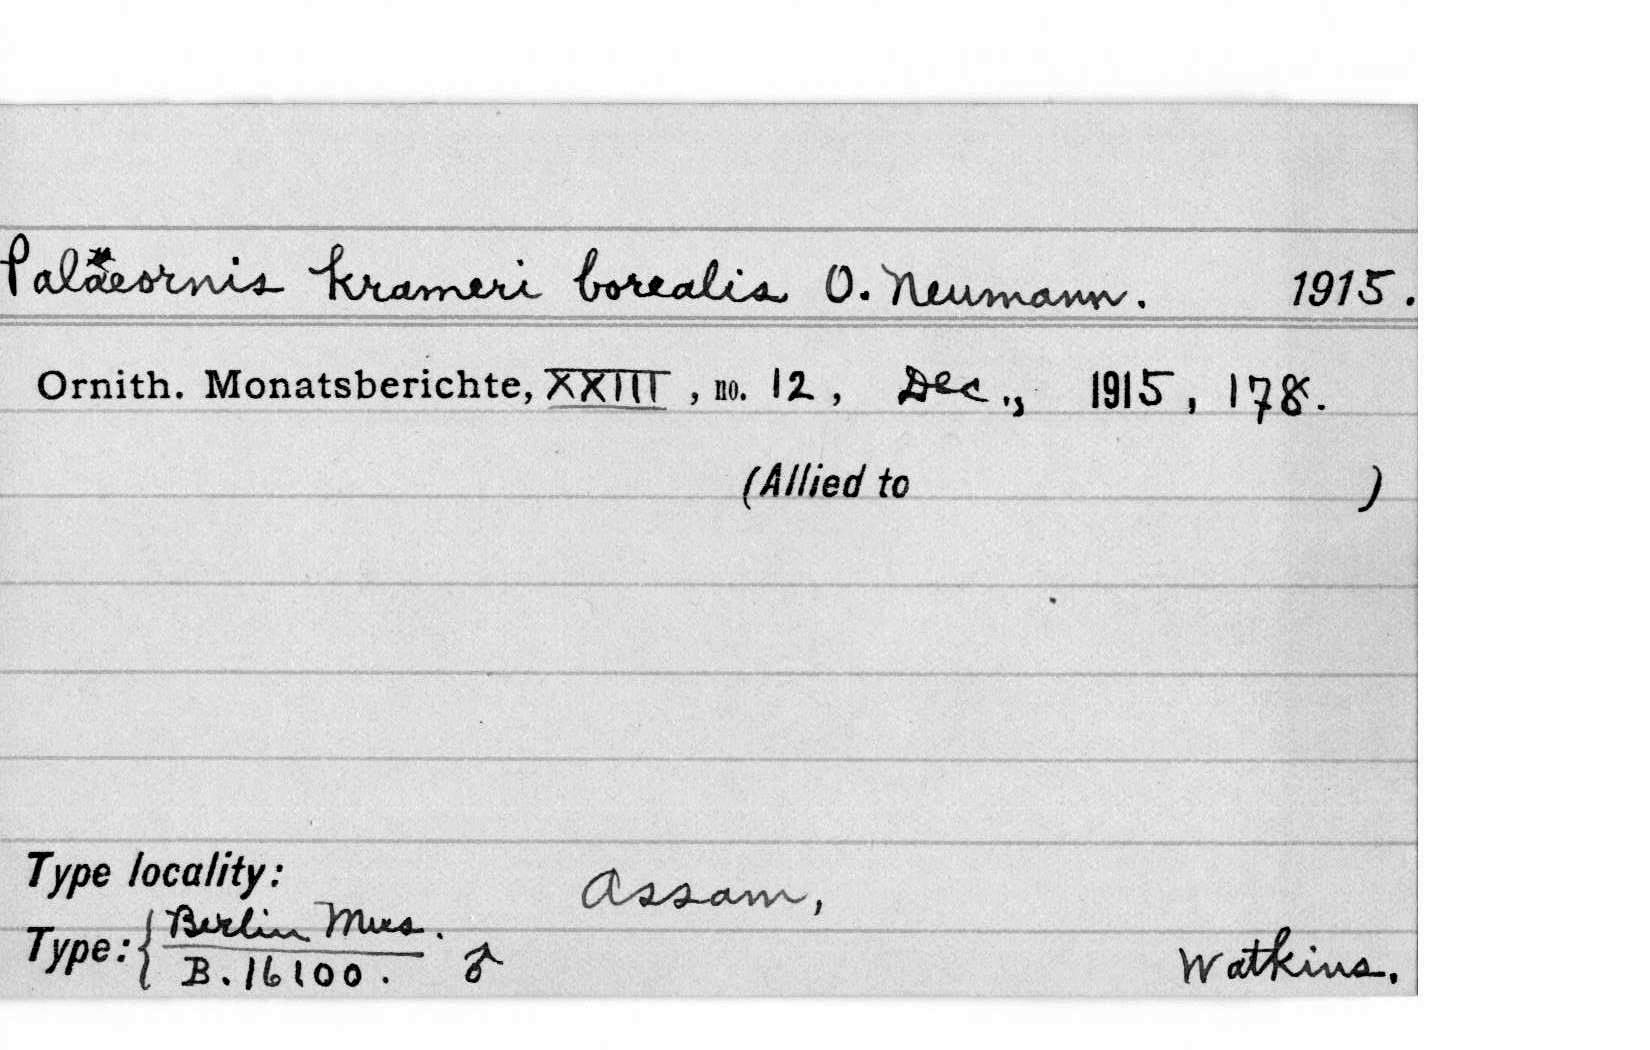 Palæornis krameri borealis O. Neumann. 1915.
Ornith. Monatsberichte, XXIII, no. 12, Dec., 1915, 178.
(Allied to )
Type locality: Assam,
Type: { Berlin Mus.
B. 16100. ♂ Watkins.